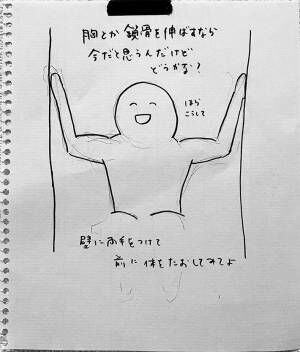 胸とか鎖骨を伸ばすなら
今だと思うんだけど
どうかな?
ほら
こうして
壁に両手をつけて
前に体をたおしてみてよ